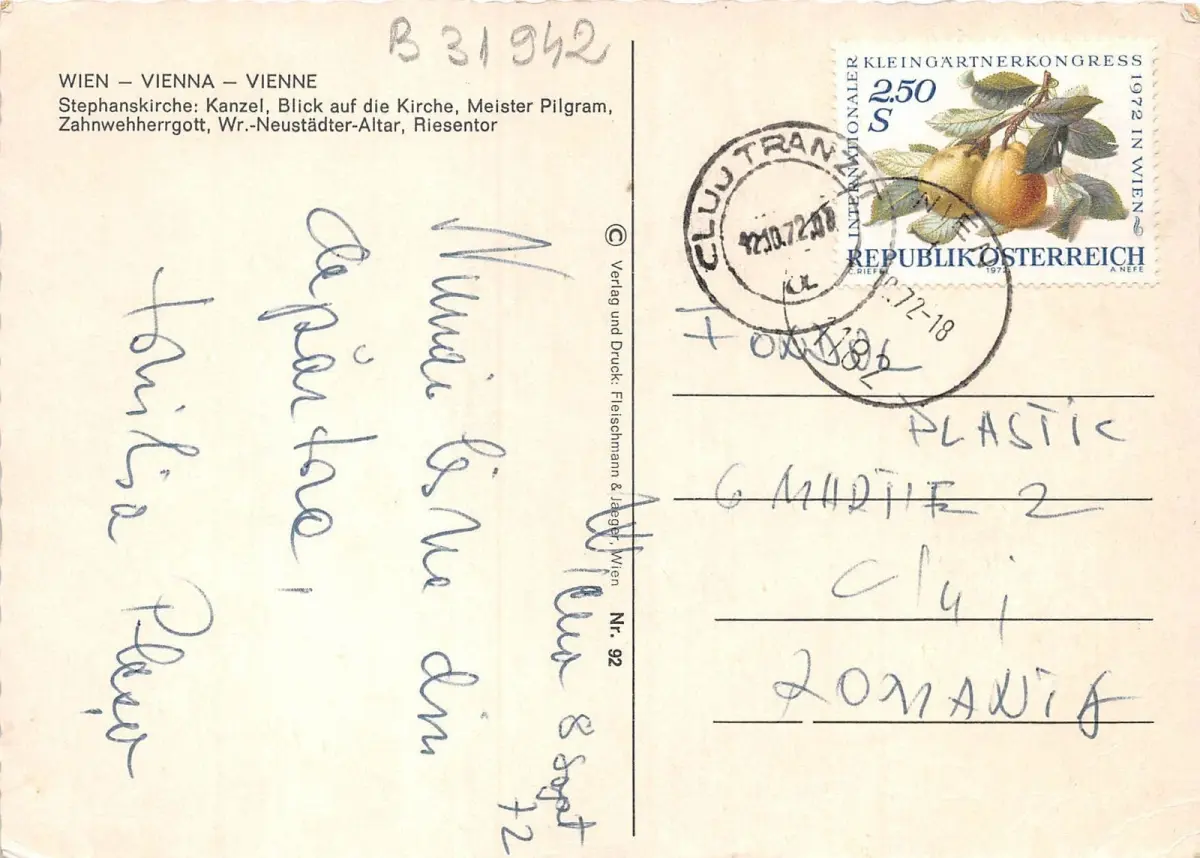 B 31942
WIEN – VIENNA – VIENNE
Stephanskirche: Kanzel, Blick auf die Kirche, Meister Pilgram,
Zahnwehherrgott, Wr.-Neustädter-Altar, Riesentor
Viena 8 Sept
72
Numai bine din
depărtare,
© Verlag und Druck: Fleischmann & Jaeger, Wien Nr. 92
INTERNATIONALER KLEINGÄRTNERKONGRESS 1972 IN WIEN
2.50
S
REPUBLIK ÖSTERREICH
C. RIEFEL 1972 A. NEFE
CLUJ TRANZIT
12.10.72.07
WIEN
.72-18
FONDUL
PLASTIC
6 MARTIE 2
Cluj
ROMANIA